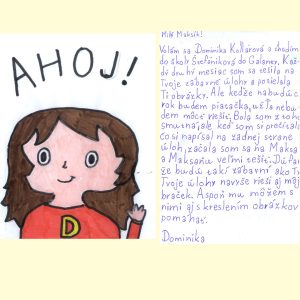 AHOJ!
D
Milý Maksík!
Volám sa Dominika Kollárová a chodím
do školy Štefánikova do Galanty. Kaž-
dý druhý mesiac som sa tešila na
Tvoje zábavné úlohy a posielala
Ti obrázky. Ale keďže na budúci
rok budem piatačka, už ťa nebu-
dem môcť riešiť. Bola som z toho
smutná, ale keď som si prečítala
čo si napísal na zadnej strane
úloh, začala som sa na Maksa
a Maksaňu veľmi tešiť. Dúfam,
že budú takí zábavní ako Ty.
Tvoje úlohy navyše rieši aj môj
braček. Aspoň mu môžem s
nimi aj s kreslením obrázkov
pomáhať.
Dominika